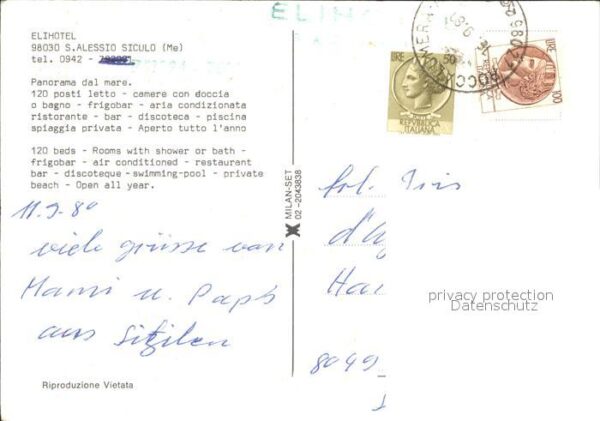 ELIHOTEL
98030 S.ALESSIO SICULO (Me)
tel. 0942 -
Panorama dal mare.
120 posti letto - camere con doccia
o bagno - frigobar - aria condizionata
ristorante - bar - discoteca - piscina
spiaggia privata - Aperto tutto l'anno
120 beds - Rooms with shower or bath -
frigobar - air conditioned - restaurant
bar - discoteque - swimming-pool - private
beach - Open all year.
11.9.80
viele grüsse von
Mami u. Papi
aus Sizilen
Riproduzione Vietata
MILAN-SET
02 - 2043838
ELIHO
LIRE 50
REPUBBLICA
ITALIANA
LIRE 100
d'A
Hau
8049
privacy protection
Datenschutz